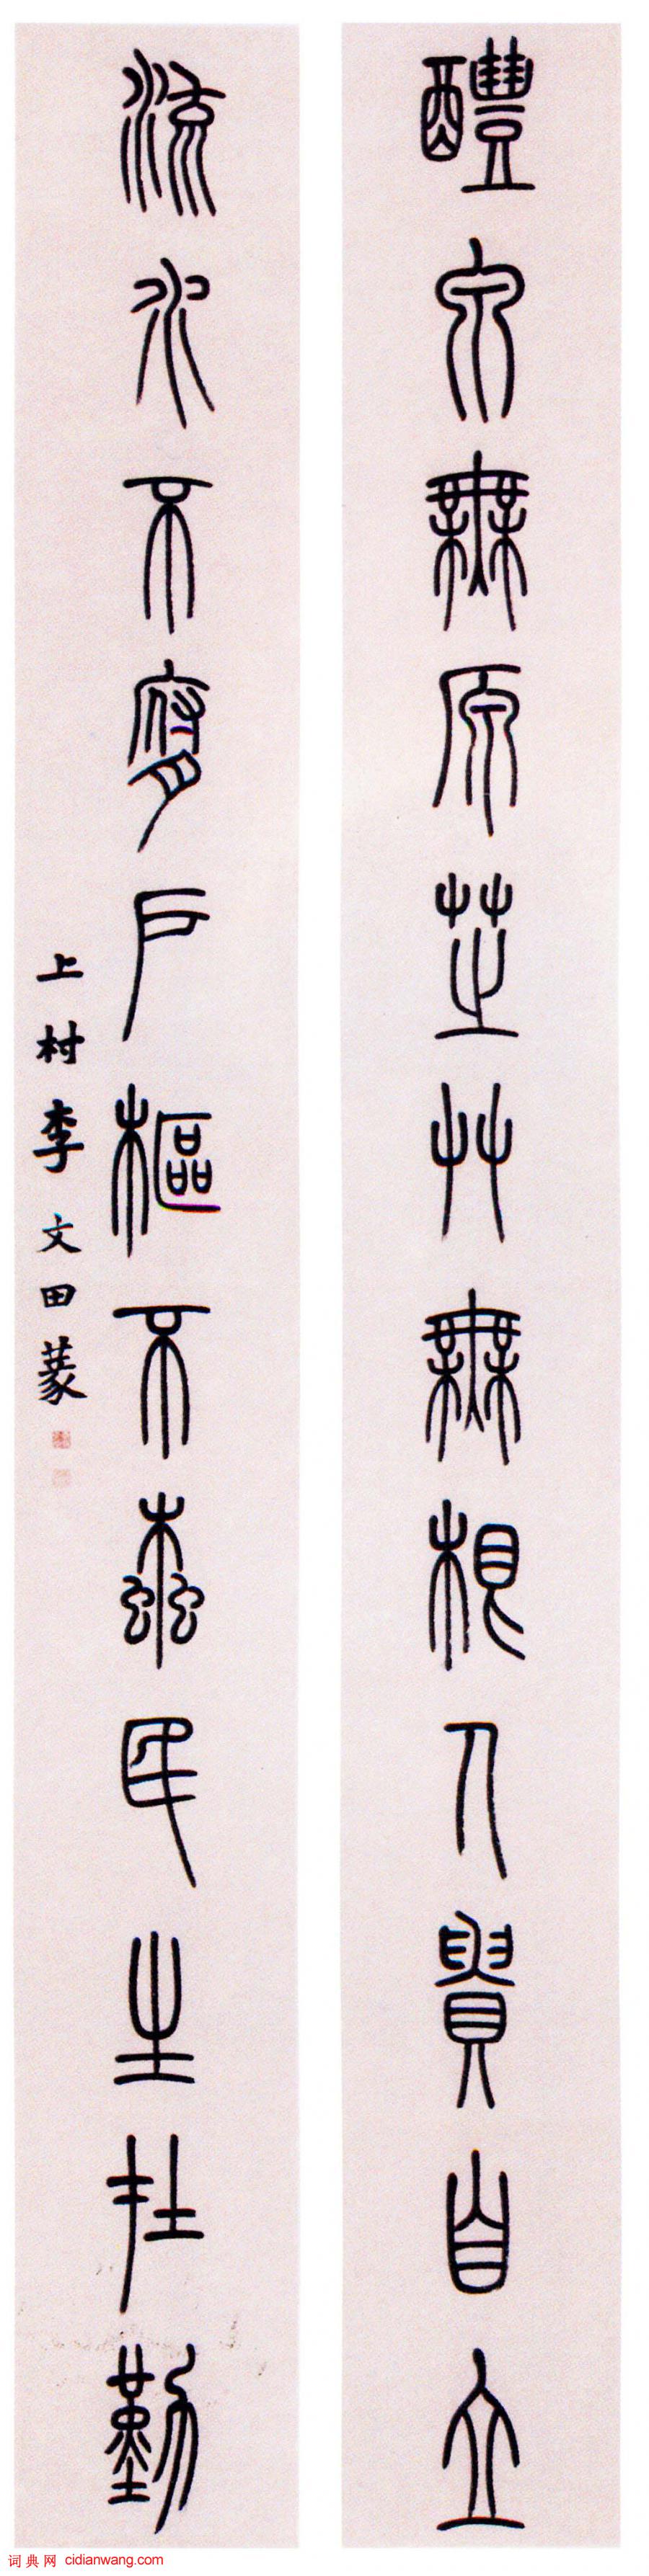 醴泉無原芝艸無根人貴自立
流水不腐戶樞不蠹民生在勤
上村李文田篆
词典网 cidianwang.com